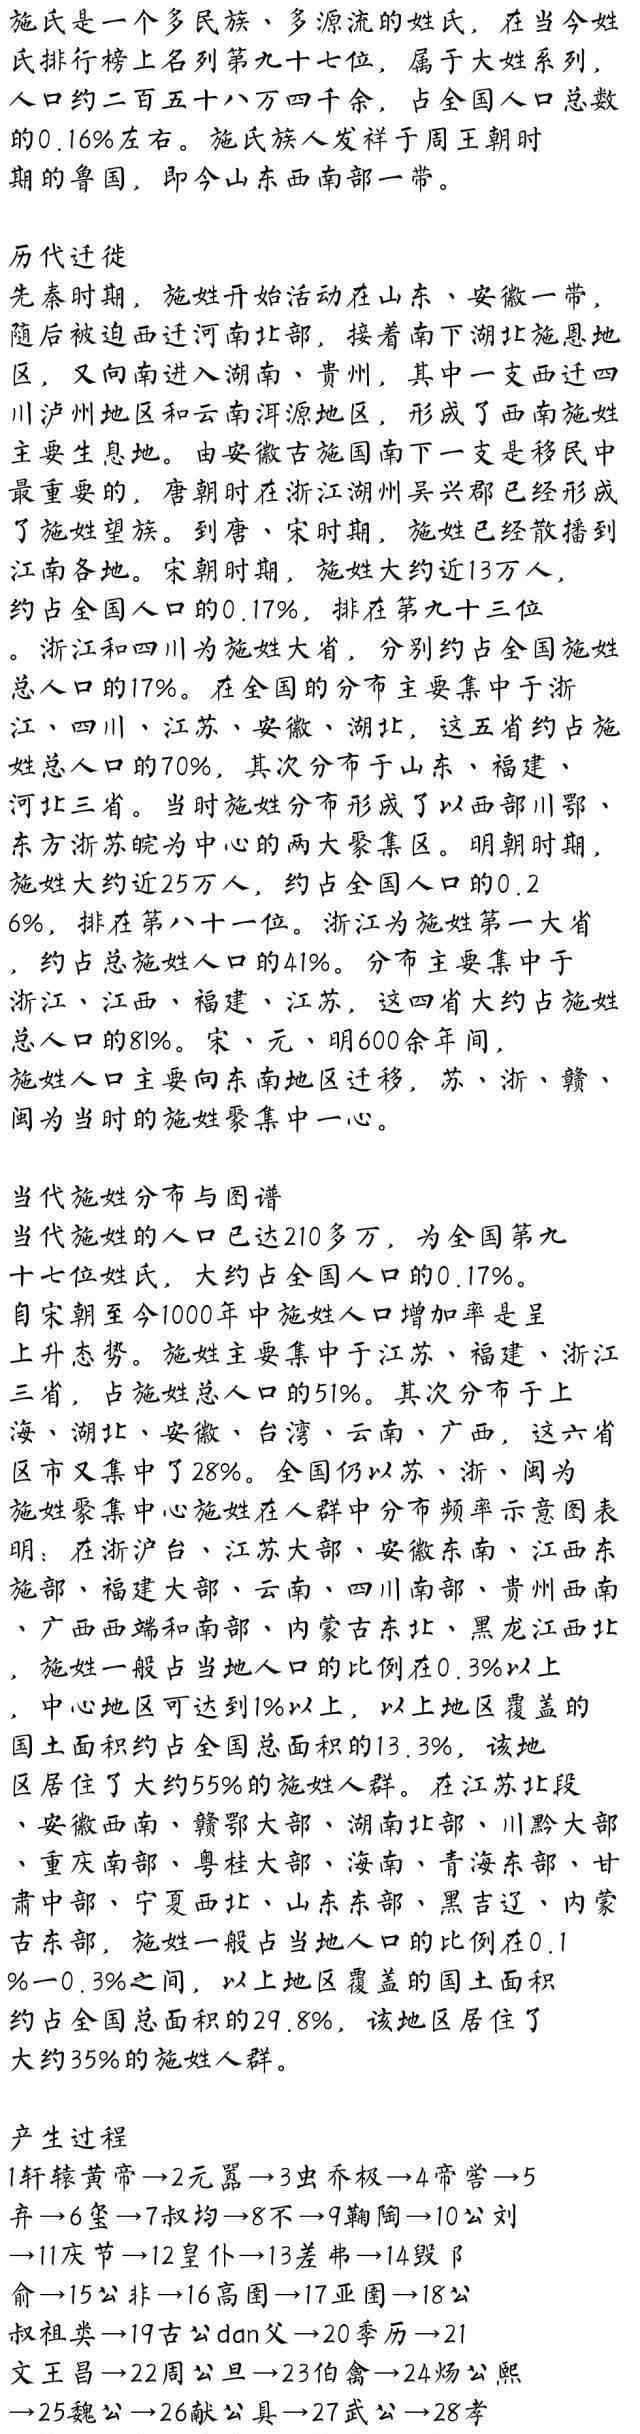 施氏是一个多民族、多源流的姓氏，在当今姓
氏排行榜上名列第九十七位，属于大姓系列，
人口约二百五十八万四千余，占全国人口总数
的0.16%左右。施氏族人发祥于周王朝时
期的鲁国，即今山东西南部一带。
历代迁徙
先秦时期，施姓开始活动在山东、安徽一带，
随后被迫西迁河南北部，接着南下湖北施恩地
区，又向南进入湖南、贵州，其中一支西迁四
川泸州地区和云南洱源地区，形成了西南施姓
主要生息地。由安徽古施国南下一支是移民中
最重要的，唐朝时在浙江湖州吴兴郡已经形成
了施姓望族。到唐、宋时期，施姓已经散播到
江南各地。宋朝时期，施姓大约近13万人，
约占全国人口的0.17%，排在第九十三位
。浙江和四川为施姓大省，分别约占全国施姓
总人口的17%。在全国的分布主要集中于浙
江、四川、江苏、安徽、湖北，这五省约占施
姓总人口的70%，其次分布于山东、福建、
河北三省。当时施姓分布形成了以西部川鄂、
东方浙苏皖为中心的两大聚集区。明朝时期，
施姓大约近25万人，约占全国人口的0.2
6%，排在第八十一位。浙江为施姓第一大省
，约占总施姓人口的41%。分布主要集中于
浙江、江西、福建、江苏，这四省大约占施姓
总人口的81%。宋、元、明600余年间，
施姓人口主要向东南地区迁移，苏、浙、赣、
闽为当时的施姓聚集中一心。
当代施姓分布与图谱
当代施姓的人口已达210多万，为全国第九
十七位姓氏，大约占全国人口的0.17%。
自宋朝至今1000年中施姓人口增加率是呈
上升态势。施姓主要集中于江苏、福建、浙江
三省，占施姓总人口的51%。其次分布于上
海、湖北、安徽、台湾、云南、广西，这六省
区市又集中了28%。全国仍以苏、浙、闽为
施姓聚集中心施姓在人群中分布频率示意图表
明：在浙沪台、江苏大部、安徽东南、江西东
施部、福建大部、云南、四川南部、贵州西南
、广西西端和南部、内蒙古东北、黑龙江西北
，施姓一般占当地人口的比例在0.3%以上
，中心地区可达到1%以上，以上地区覆盖的
国土面积约占全国总面积的13.3%，该地
区居住了大约55%的施姓人群。在江苏北段
、安徽西南、赣鄂大部、湖南北部、川黔大部
、重庆南部、粤桂大部、海南、青海东部、甘
肃中部、宁夏西北、山东东部、黑吉辽、内蒙
古东部，施姓一般占当地人口的比例在0.1
%一0.3%之间，以上地区覆盖的国土面积
约占全国总面积的29.8%，该地区居住了
大约35%的施姓人群。
产生过程
1轩辕黄帝→2元嚣→3虫乔极→4帝喾→5
弃→6玺→7叔均→8不→9鞠陶→10公刘
→11庆节→12皇仆→13差弗→14毁阝
俞→15公非→16高圉→17亚圉→18公
叔祖类→19古公dan父→20季历→21
文王昌→22周公旦→23伯禽→24炀公熙
→25魏公→26献公具→27武公→28孝